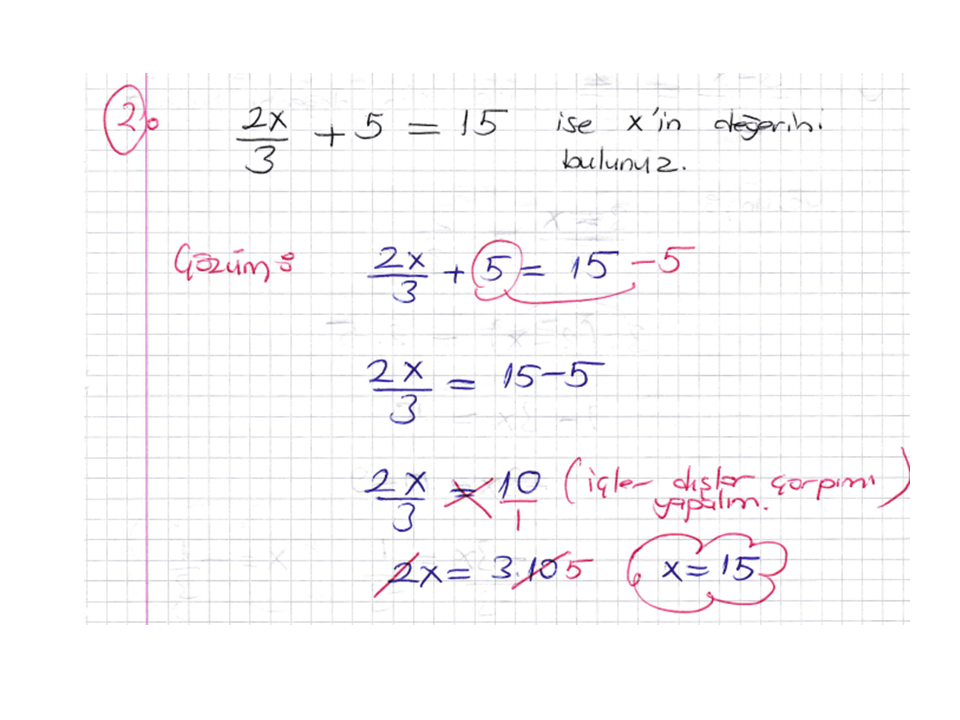 2. 2x/3 + 5 = 15 ise x'in değerini
bulunuz.
Çözüm: 2x/3 + 5 = 15 - 5
2x/3 = 15 - 5
2x/3 = 10/1 (içler dışlar çarpımı
yapalım.)
2x = 3.10 5 x = 15